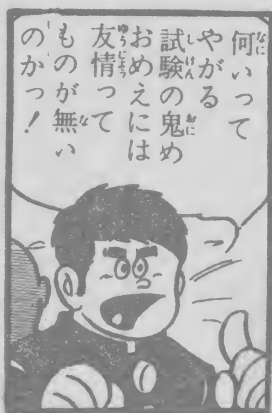 何いって
やがる
試験の鬼め
おめえには
友情って
ものが無い
のかっ!